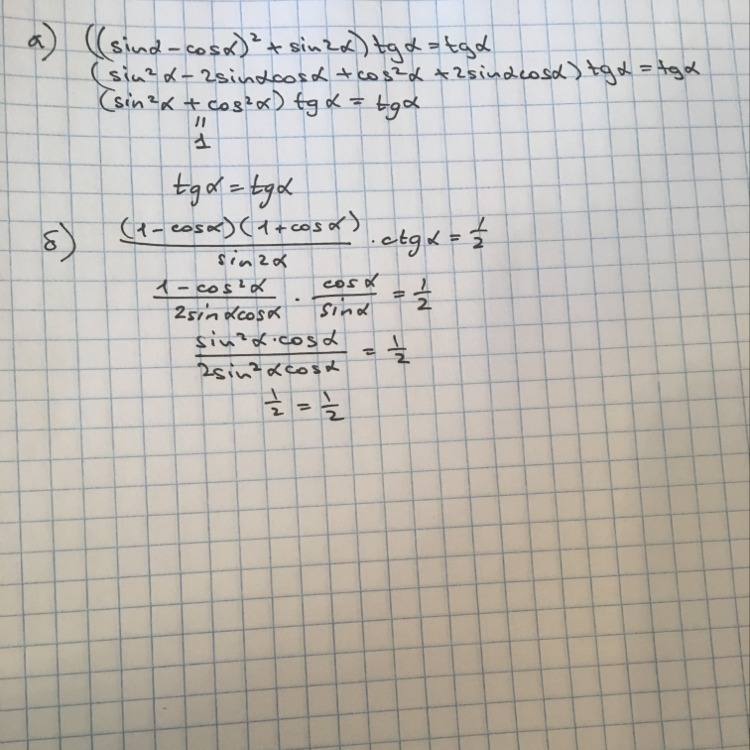 а) ((sinα - cosα)² + sin2α) tgα = tgα
(sin²α - 2sinαcosα + cos²α + 2sinαcosα) tgα = tgα
(sin²α + cos²α) tgα = tgα
"
1
tgα = tgα
б) (1 - cosα)(1 + cosα) / sin2α · ctgα = 1/2
1 - cos²α / 2sinαcosα · cosα / sinα = 1/2
sin²α · cosα / 2sin²αcosα = 1/2
1/2 = 1/2